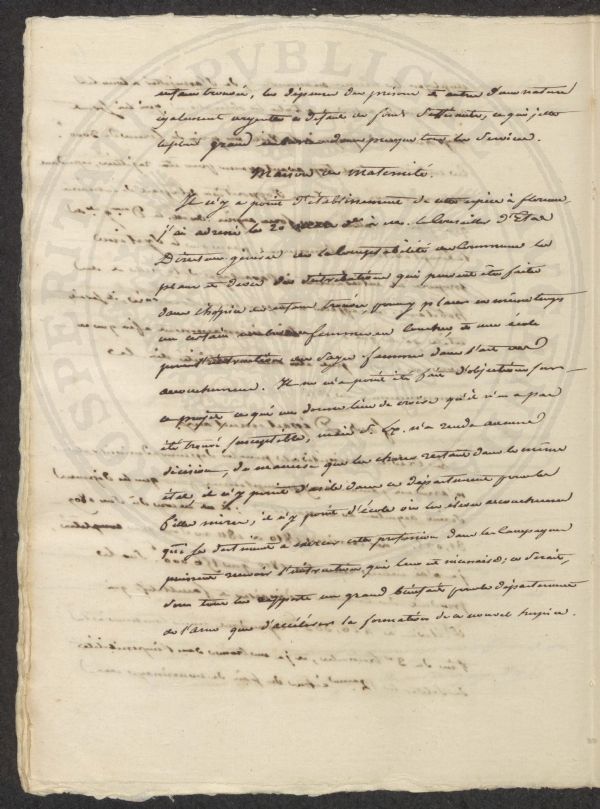 enfans trouvés, les dépenses des prisons et autres d'une nature
également urgentes à défaut de fonds suffisants, ce qui jette
le plus grand embarras dans presque tous les services.
Maison de maternité.
Il n'y a point d'établissement de cette espèce à florence
j'ai adressé le 20 à M. le Conseiller d'Etat
Directeur général de la Comptabilité des Communes les
plans et devis des distributions qui peuvent être faites
dans l'hospice des enfans trouvés, pour y placer en même temps
un certain nombre de femmes en couches et une école
pour l'instruction des sages femmes dans l'art des
accouchemens. Il ne m'a point été fait d'objections sur
ce projet ce qui me donne lieu de croire qu'il n'en a pas
été trouvé susceptible, mais S. Ex. n'a rendu aucune
décision, de manière que les choses restant dans le même
état, il n'y a point d'asile dans ce département pour les
filles mères, il n'y a point d'école où les élèves accoucheuses
qui se destinent à exercer cette profession dans les Campagnes
puissent recevoir l'instruction qui leur est nécessaire; ce serait,
sous tous les rapports un grand bienfait pour le département
de l'arno que d'accélérer la formation de ce nouvel hospice.